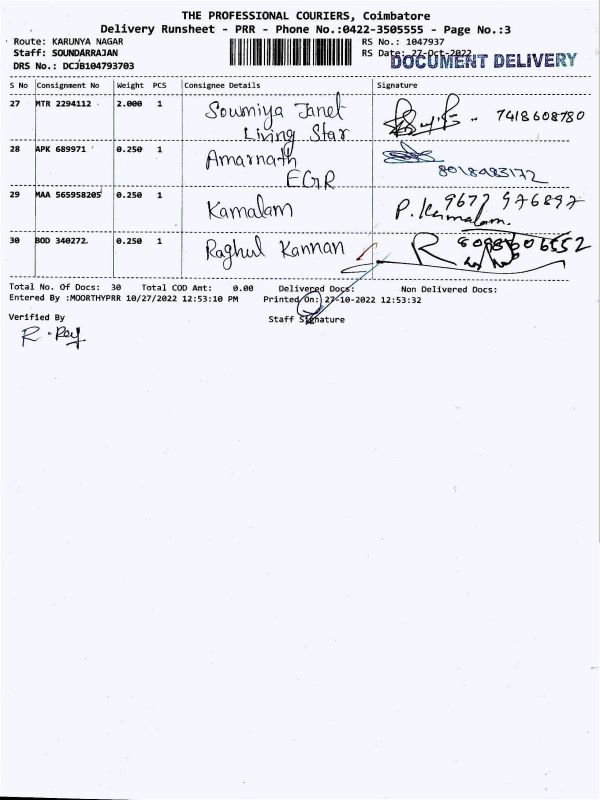 THE PROFESSIONAL COURIERS, Coimbatore
Delivery Runsheet - PRR - Phone No.:0422-3505555 - Page No.:3
Route: KARUNYA NAGAR RS No.: 1047937
Staff: SOUNDARRAJAN RS Date: 27-Oct-2022
DOCUMENT DELIVERY
DRS No.: DCJB104793703
S No Consignment No Weight PCS Consignee Details Signature
27 MTR 2294112 2.000 1 Soumiya Janet 7418608780
Living Star
28 APK 689971 0.250 1 Amarnath
EGR 8018483172
29 MAA 565958205 0.250 1 Kamalam P. Kamalam.
30 BOD 340272 0.250 1 Raghul Kannan
Total No. Of Docs: 30 Total COD Amt: 0.00 Delivered Docs: Non Delivered Docs:
Entered By :MOORTHYPRR 10/27/2022 12:53:10 PM Printed On: 27-10-2022 12:53:32
Verified By Staff Signature